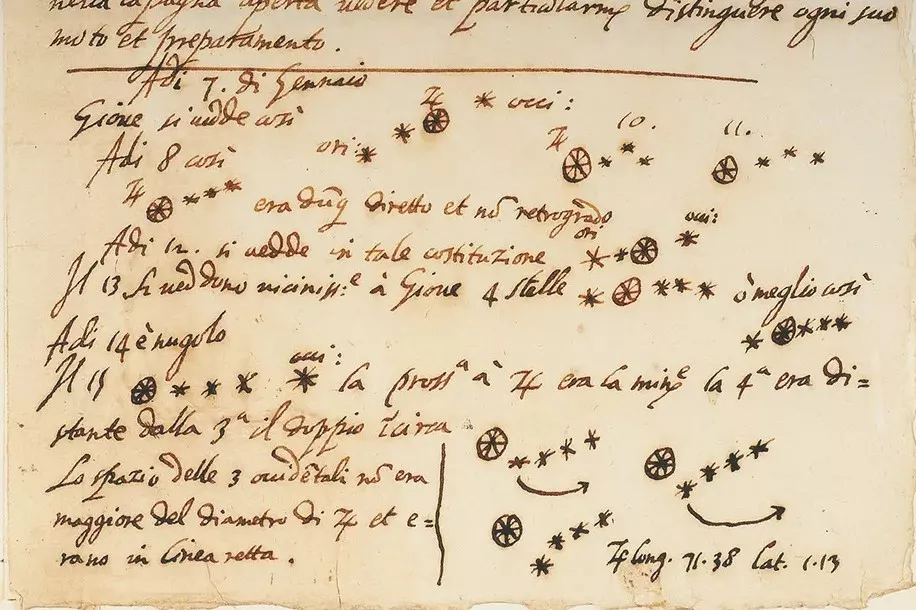 nella capagna aperta vedere et particolarmẽ distinguere ogni suo
moto et preparamento.
Adi 7. di Gennaio
Gioue si uedde così
♃ * occi:
ori: * *
Adi 8 così
♃ 10. 11.
♃ * * *
era dũq̃ diretto et nõ retrogrado
Adi 12. si uedde in tale costituzione
ori * * occi: *
Il 13 si ueddono vicinissᵉ à Gioue 4 stelle * * * *
ò meglio così
Adi 14 è nugolo
Il 15 * * * occi: * la prossᵃ à ♃ era la minẽ la 4ᵃ era di=
stante dalla 3ᵃ il doppio ĩcirca
Lo spazio delle 3 occidẽtali nõ era
maggiore del diametro di ♃ et e=
rano in linea retta.
♃ long. 71.38 lat. 1.13